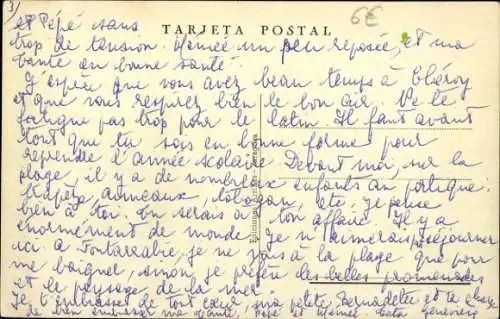 3)
6€
TARJETA POSTAL
et Pépé sans
trop de tension. Mémé un peu reposée, et ma
tante en bonne santé.
J'espère que vous avez beau temps à
et que vous respirez bien le bon air. Ne te
fatigue pas trop pour le latin. Il faut avant
tout que tu sois en bonne forme pour
reprendre l'année scolaire. Devant moi, sur la
plage, il y a de nombreux enfants au portique:
trapèze, anneaux, tobogan, etc, je pense
bien à toi. Tu serais à ton affaire. Il y a
énormément de monde. Je n'aimerais séjourner
ici. à Fontarrabie, je ne vais à la plage que pour
me baigner, sinon, je préfère les belles promenades
et le paysage de la mer
Je t'embrasse de tout cœur, ma petite Bernadette et te charge
de bien embrasser ma Pépé et Mémé. Tata Geneviève